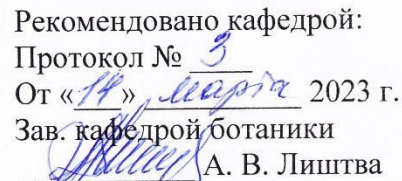 Рекомендовано кафедрой:
Протокол № 3
От «14» марта 2023 г.
Зав. кафедрой ботаники
А. В. Лиштва